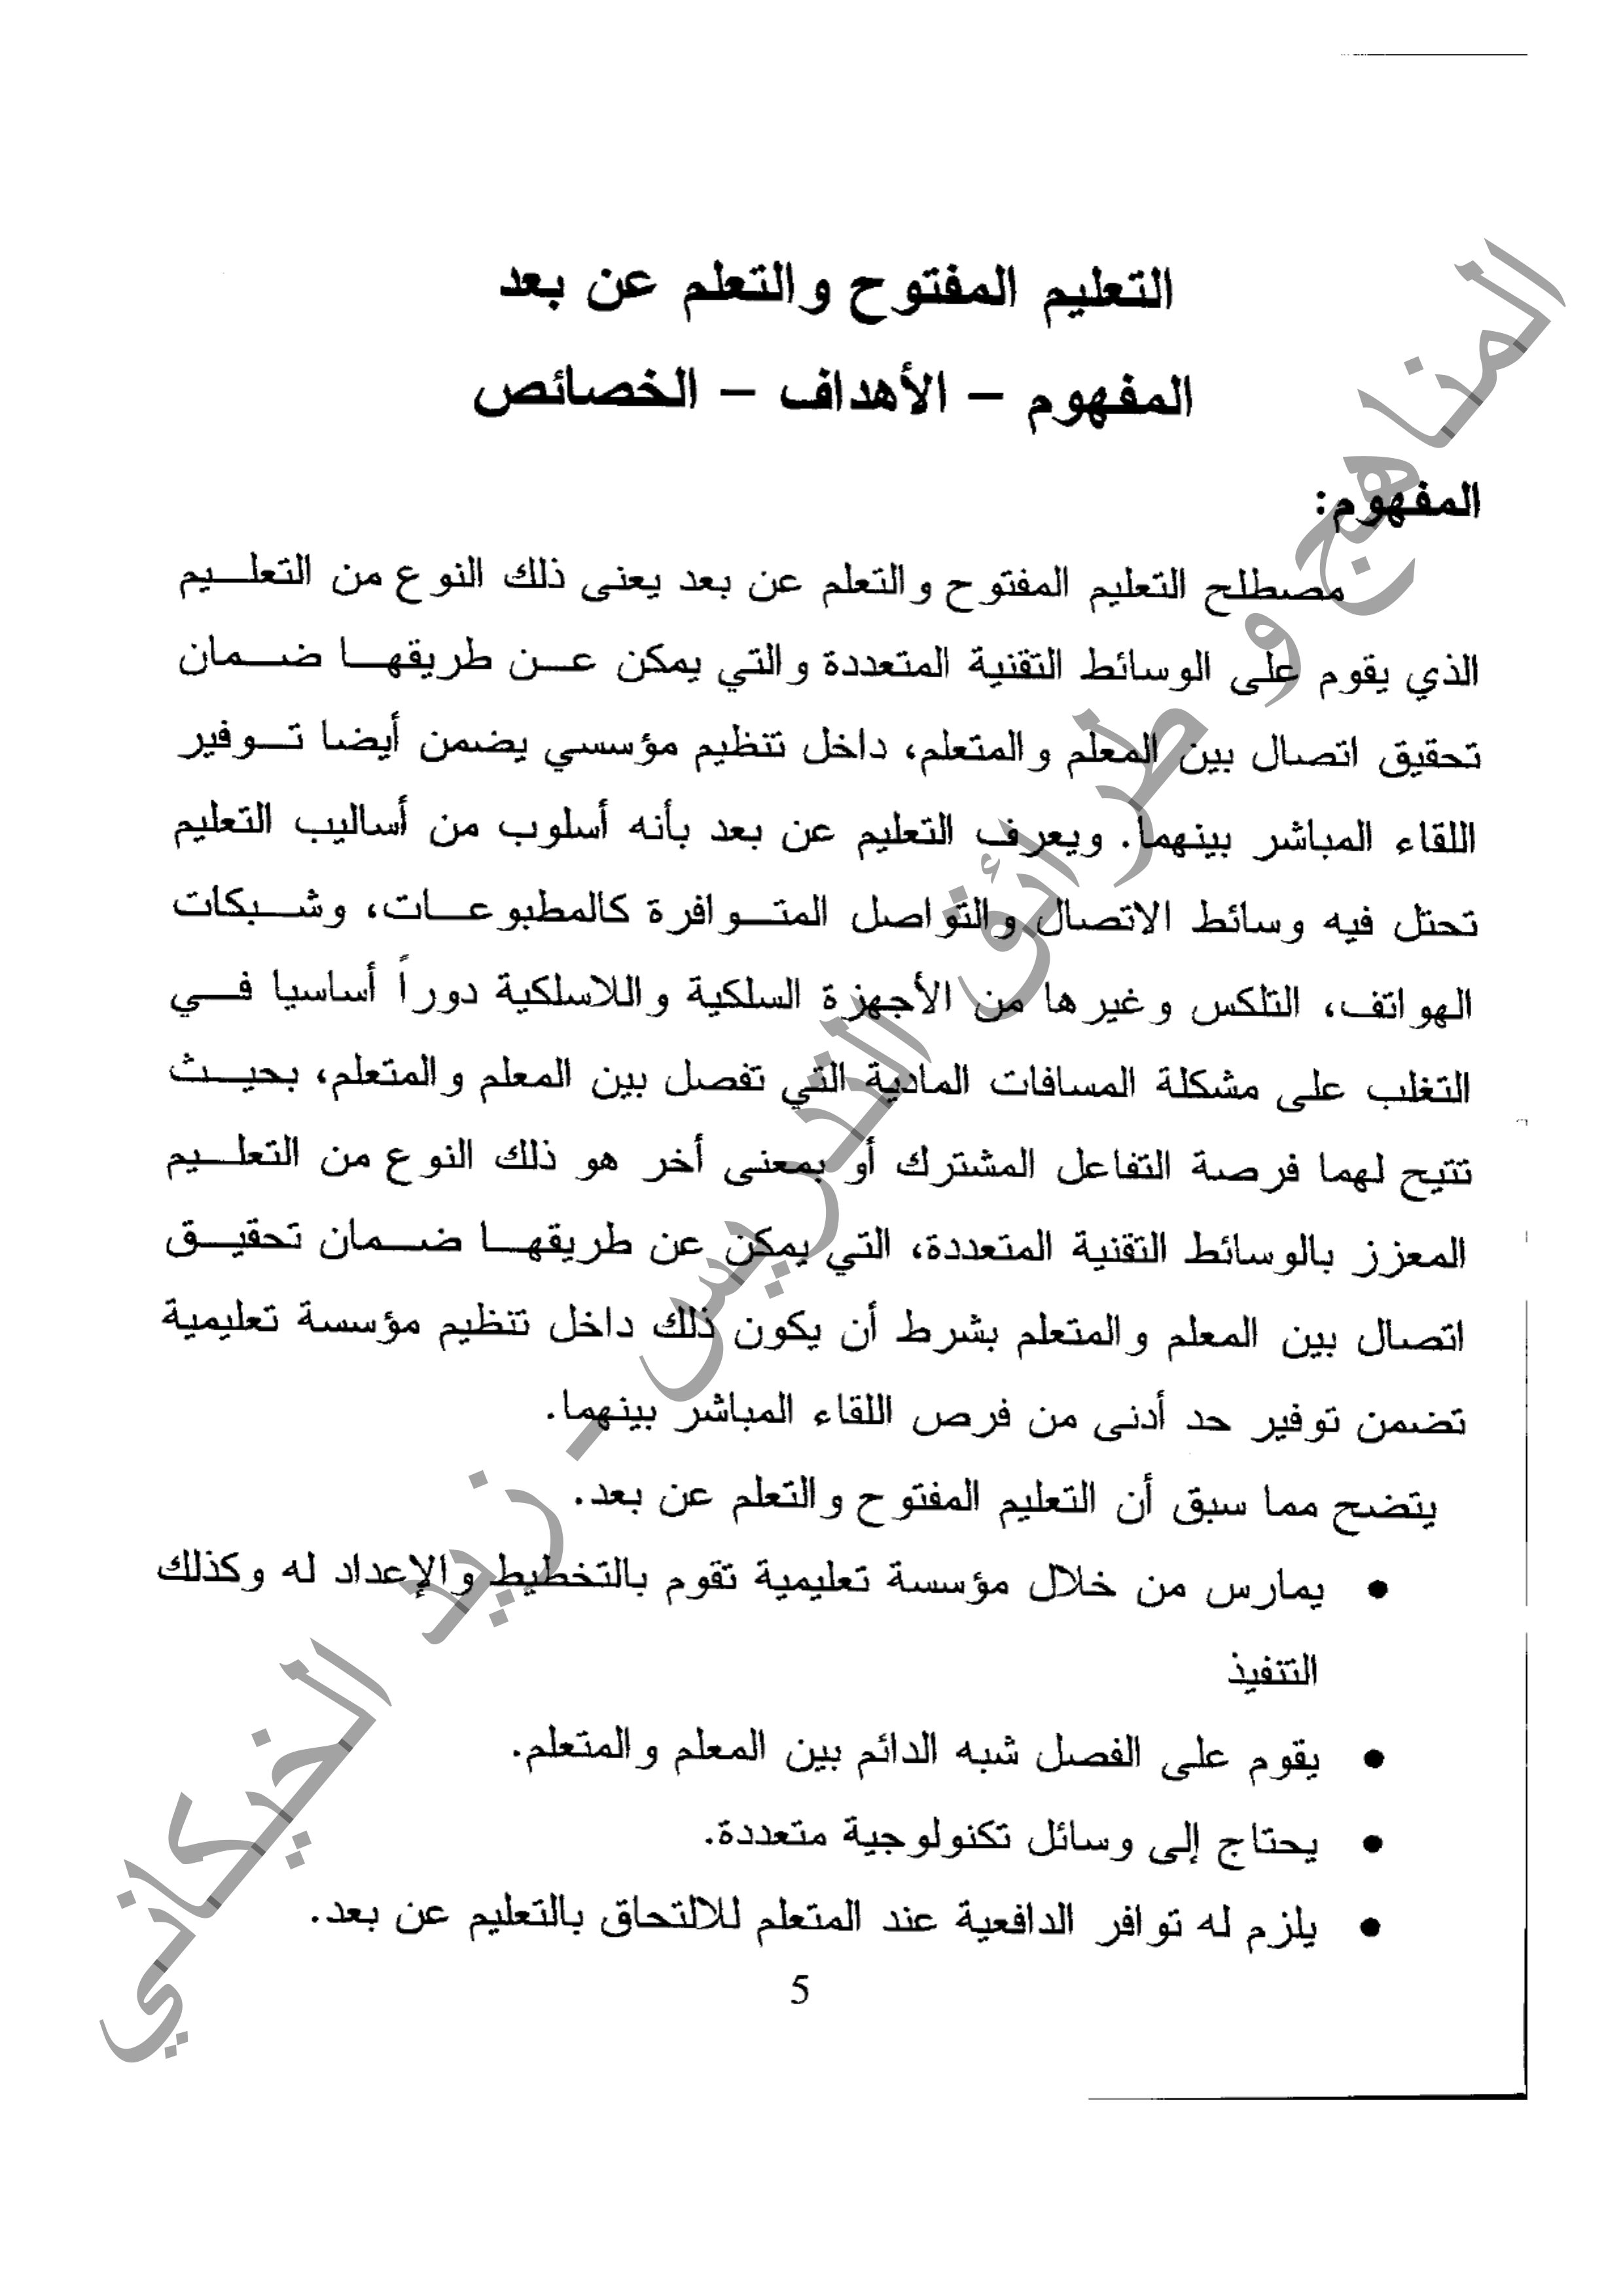 التعليم المفتوح والتعلم عن بعد
المفهوم – الأهداف – الخصائص
المفهوم:
مصطلح التعليم المفتوح والتعلم عن بعد يعنى ذلك النوع من التعليم
الذي يقوم على الوسائط التقنية المتعددة والتي يمكن عن طريقها ضمان
تحقيق اتصال بين المعلم والمتعلم، داخل تنظيم مؤسسي يضمن أيضا توفير
اللقاء المباشر بينهما. ويعرف التعليم عن بعد بأنه أسلوب من أساليب التعليم
تحتل فيه وسائط الاتصال والتواصل المتوافرة كالمطبوعات، وشبكات
الهواتف، التلكس وغيرها من الأجهزة السلكية واللاسلكية دوراً أساسيا في
التغلب على مشكلة المسافات المادية التي تفصل بين المعلم والمتعلم، بحيث
تتيح لهما فرصة التفاعل المشترك أو بمعنى أخر هو ذلك النوع من التعليم
المعزز بالوسائط التقنية المتعددة، التي يمكن عن طريقها ضمان تحقيق
اتصال بين المعلم والمتعلم بشرط أن يكون ذلك داخل تنظيم مؤسسة تعليمية
تضمن توفير حد أدنى من فرص اللقاء المباشر بينهما.
يتضح مما سبق أن التعليم المفتوح والتعلم عن بعد.
• يمارس من خلال مؤسسة تعليمية تقوم بالتخطيط والإعداد له وكذلك
التنفيذ
• يقوم على الفصل شبه الدائم بين المعلم والمتعلم.
• يحتاج إلى وسائل تكنولوجية متعددة.
• يلزم له توافر الدافعية عند المتعلم للالتحاق بالتعليم عن بعد.
5
المناهج و طرائق التدريس - زيد الخيكاني